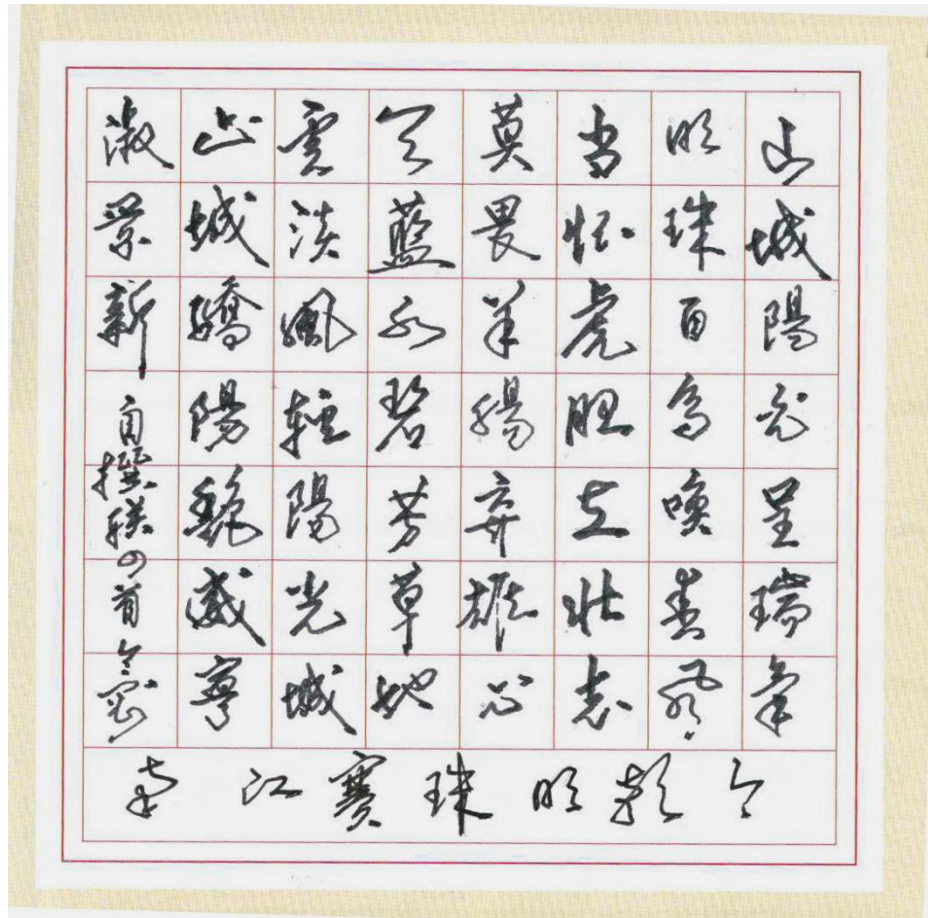 山城陽光呈瑞氣
明珠百鳥喚春風
当怀虎胆立壮志
莫畏羊腸弃雄心
天藍水碧芳草地
雲淡風輕陽光城
山城驕陽艷威寧
淑景新 自撰联四首
今朝明珠賽江南